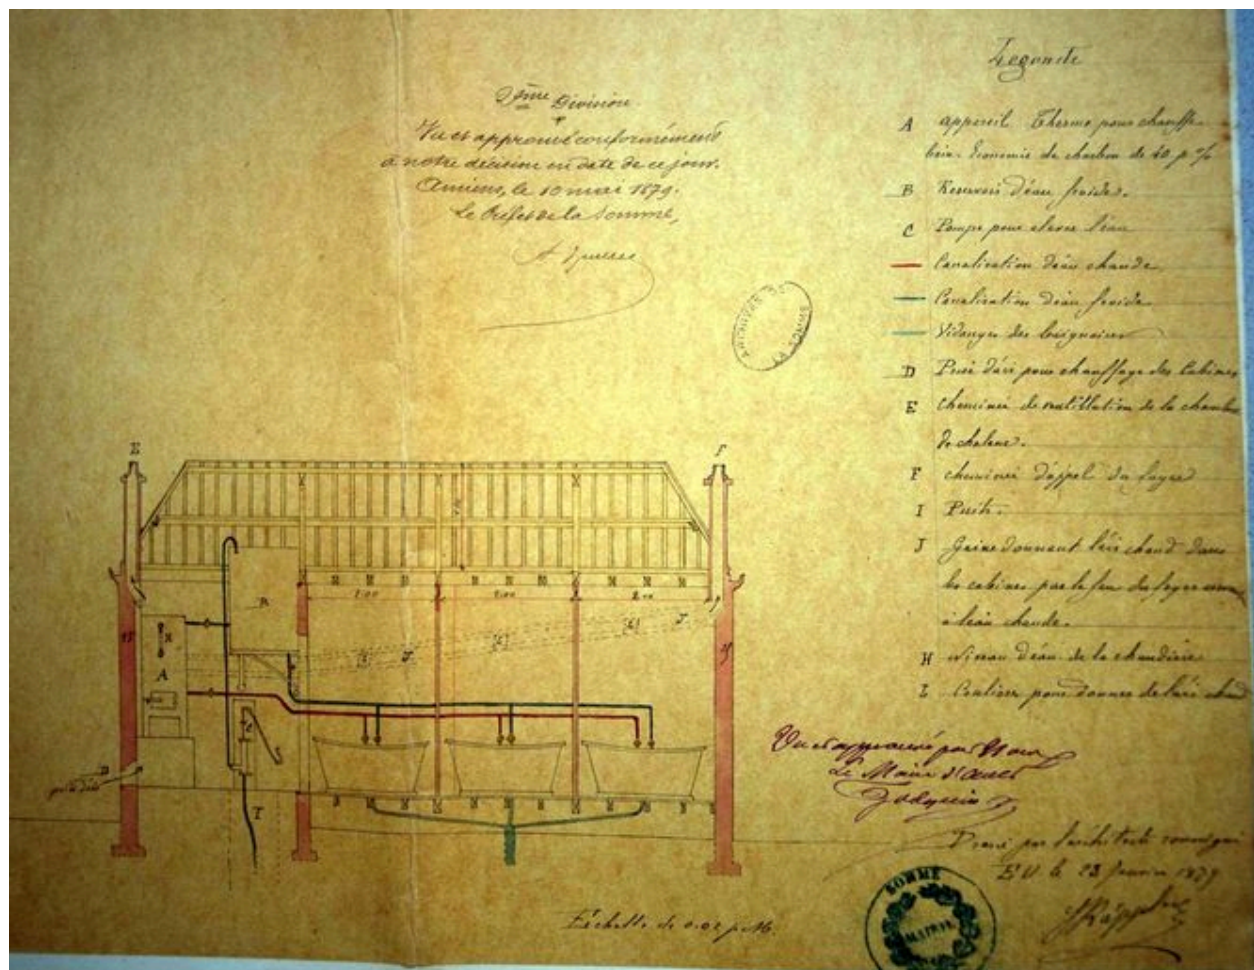 2ème Division
Vu et approuvé conformément
à notre décision en date de ce jour.
Amiens, le 10 mai 1879.
Le Préfet de la Somme,
Legende
A appareil Therme pour chauffe
bain. Economie de charbon de 40 p %
B Reservoir d'eau froide.
C Pompe pour elever l'eau
Canalisation d'eau chaude
Canalisation d'eau froide
Vidanges des baignoires
D Prise d'air pour chauffage des Cabines
E Cheminée de ventillation de la chambre
de chaleur.
F cheminée d'appel du foyer
I Puits.
J Gaine donnant l'air chaud dans
les cabines par le feu du foyer
à l'eau chaude.
H Niveau d'eau de la chaudière
L Coulisses pour donner de l'air chaud
E
F
B
2.00
2.00
2.00
J
J
H
A
C
D
I
Vu et approuvé par Nous
Le Maire d'
Dressé par l'architecte soussigné
EU le 23 janvier 1879
Echelle de 0.02 p. M.
SOMME
MAIRIE